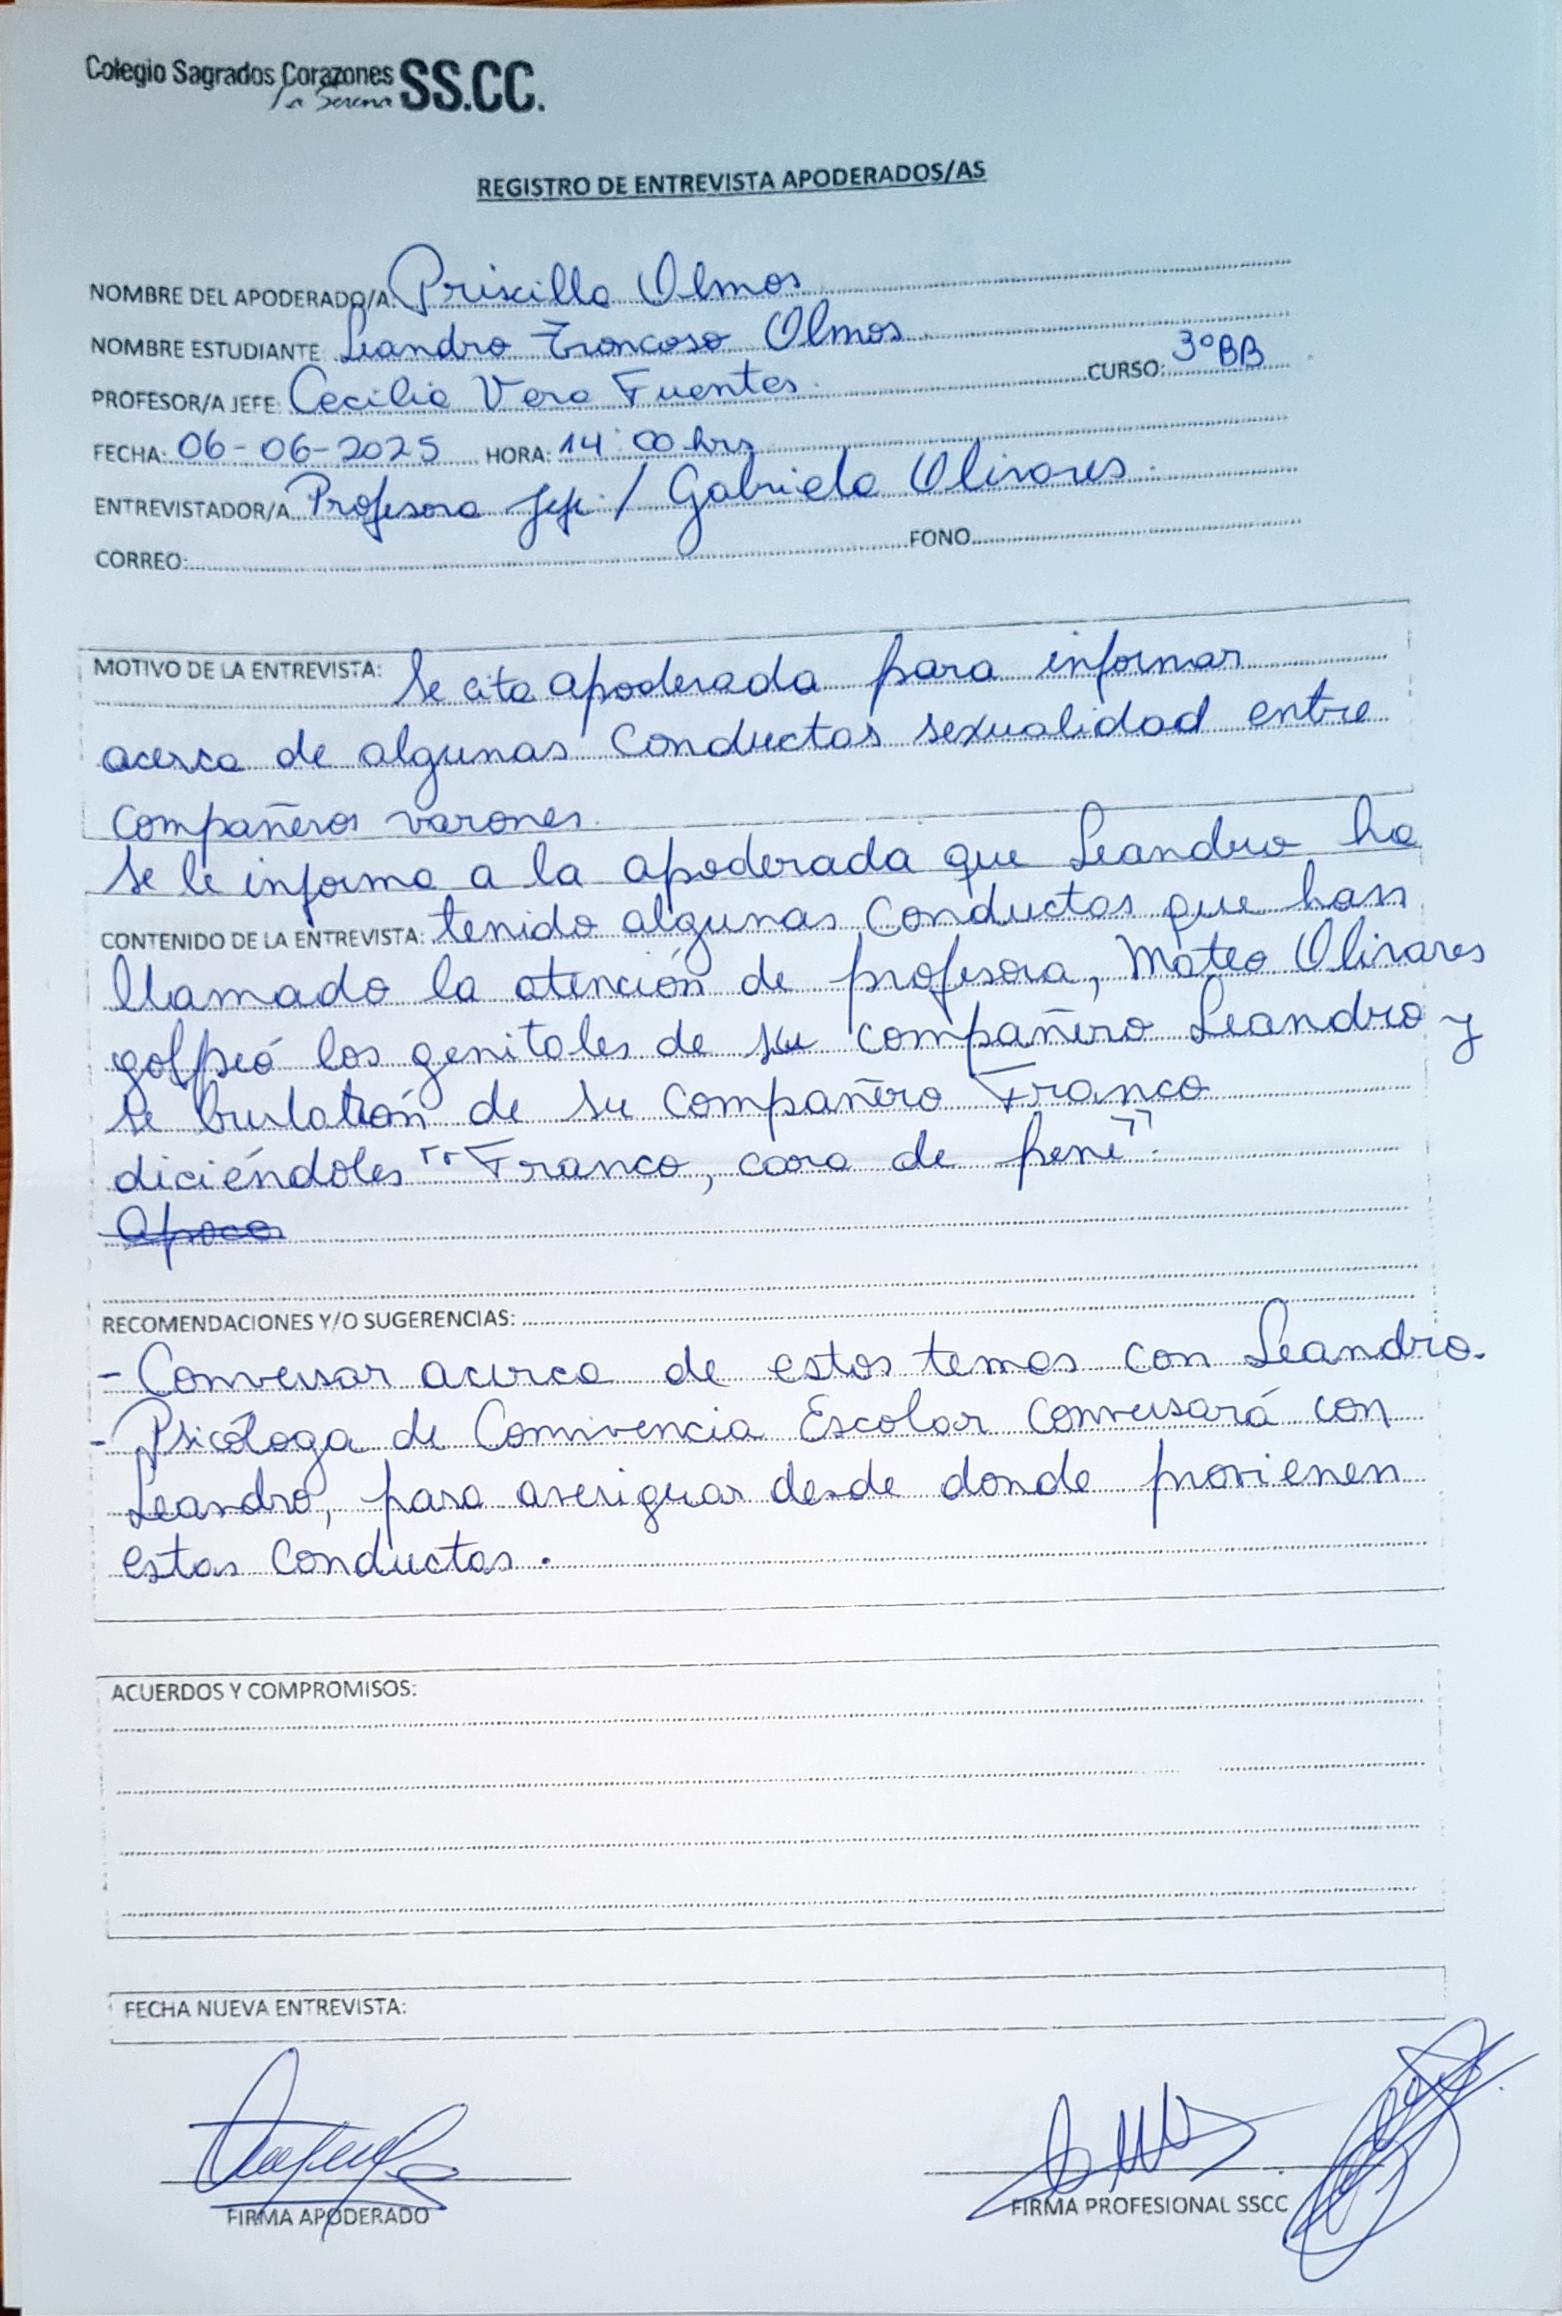 Colegio Sagrados Corazones SS.CC.
La Serena
REGISTRO DE ENTREVISTA APODERADOS/AS
NOMBRE DEL APODERADO/A: Priscilla Olmos
NOMBRE ESTUDIANTE: Leandro Troncoso Olmos
PROFESOR/A JEFE: Cecilia Vera Fuentes. CURSO: 3°BB
FECHA: 06-06-2025 HORA: 14:00 hrs
ENTREVISTADOR/A Profesora Jefe / Gabriela Olivares.
CORREO: FONO
MOTIVO DE LA ENTREVISTA: Se cita apoderada para informar
acerca de algunas conductas sexualidad entre
compañeros varones.
Se le informa a la apoderada que Leandro ha
CONTENIDO DE LA ENTREVISTA: tenido algunas conductas que han
llamado la atención de profesora, Mateo Olivares
golpeó los genitales de su compañero Leandro y
se burlaron de su compañero Franco
diciéndoles "Franco, cara de pene".
RECOMENDACIONES Y/O SUGERENCIAS:
- Conversar acerca de estos temas con Leandro.
- Psicóloga de Convivencia Escolar conversará con
Leandro, para averiguar desde donde provienen
estas conductas.
ACUERDOS Y COMPROMISOS:
FECHA NUEVA ENTREVISTA:
FIRMA APODERADO FIRMA PROFESIONAL SSCC